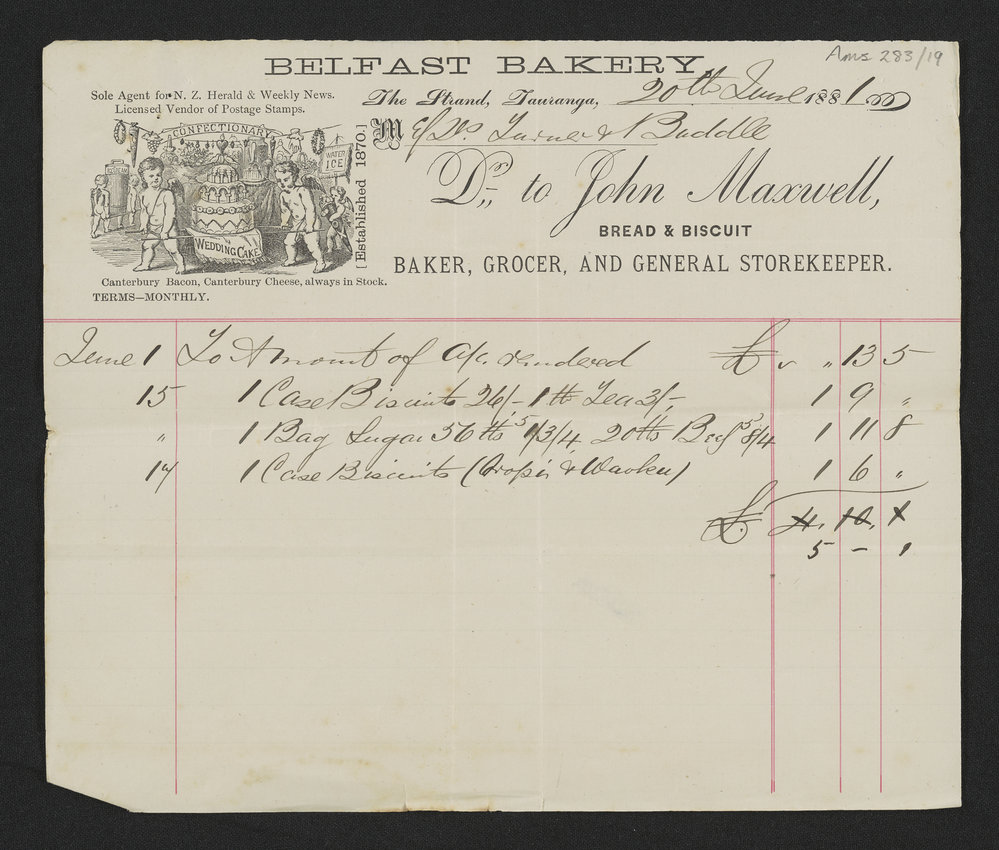 Ams 283/19
BELFAST BAKERY,
Sole Agent for N. Z. Herald & Weekly News.
Licensed Vendor of Postage Stamps.
The Strand, Tauranga, 20th June 1881
CONFECTIONARY
WATER ICE
WEDDING CAKE
[Established 1870.]
M essrs Turner & Buddle
Dr. to John Maxwell,
BREAD & BISCUIT
BAKER, GROCER, AND GENERAL STOREKEEPER.
Canterbury Bacon, Canterbury Cheese, always in Stock.
TERMS—MONTHLY.
June 1 To Amount of a/c. rendered £ " 13 5
15 1 Case Biscuits 26/- 1 lb Tea 3/- 1 9 "
" 1 Bag Sugar 56 lbs 20 lbs Beef 1 11 8
17 1 Case Biscuits 1 6 "
£ 4. 10. 1
5 – 1